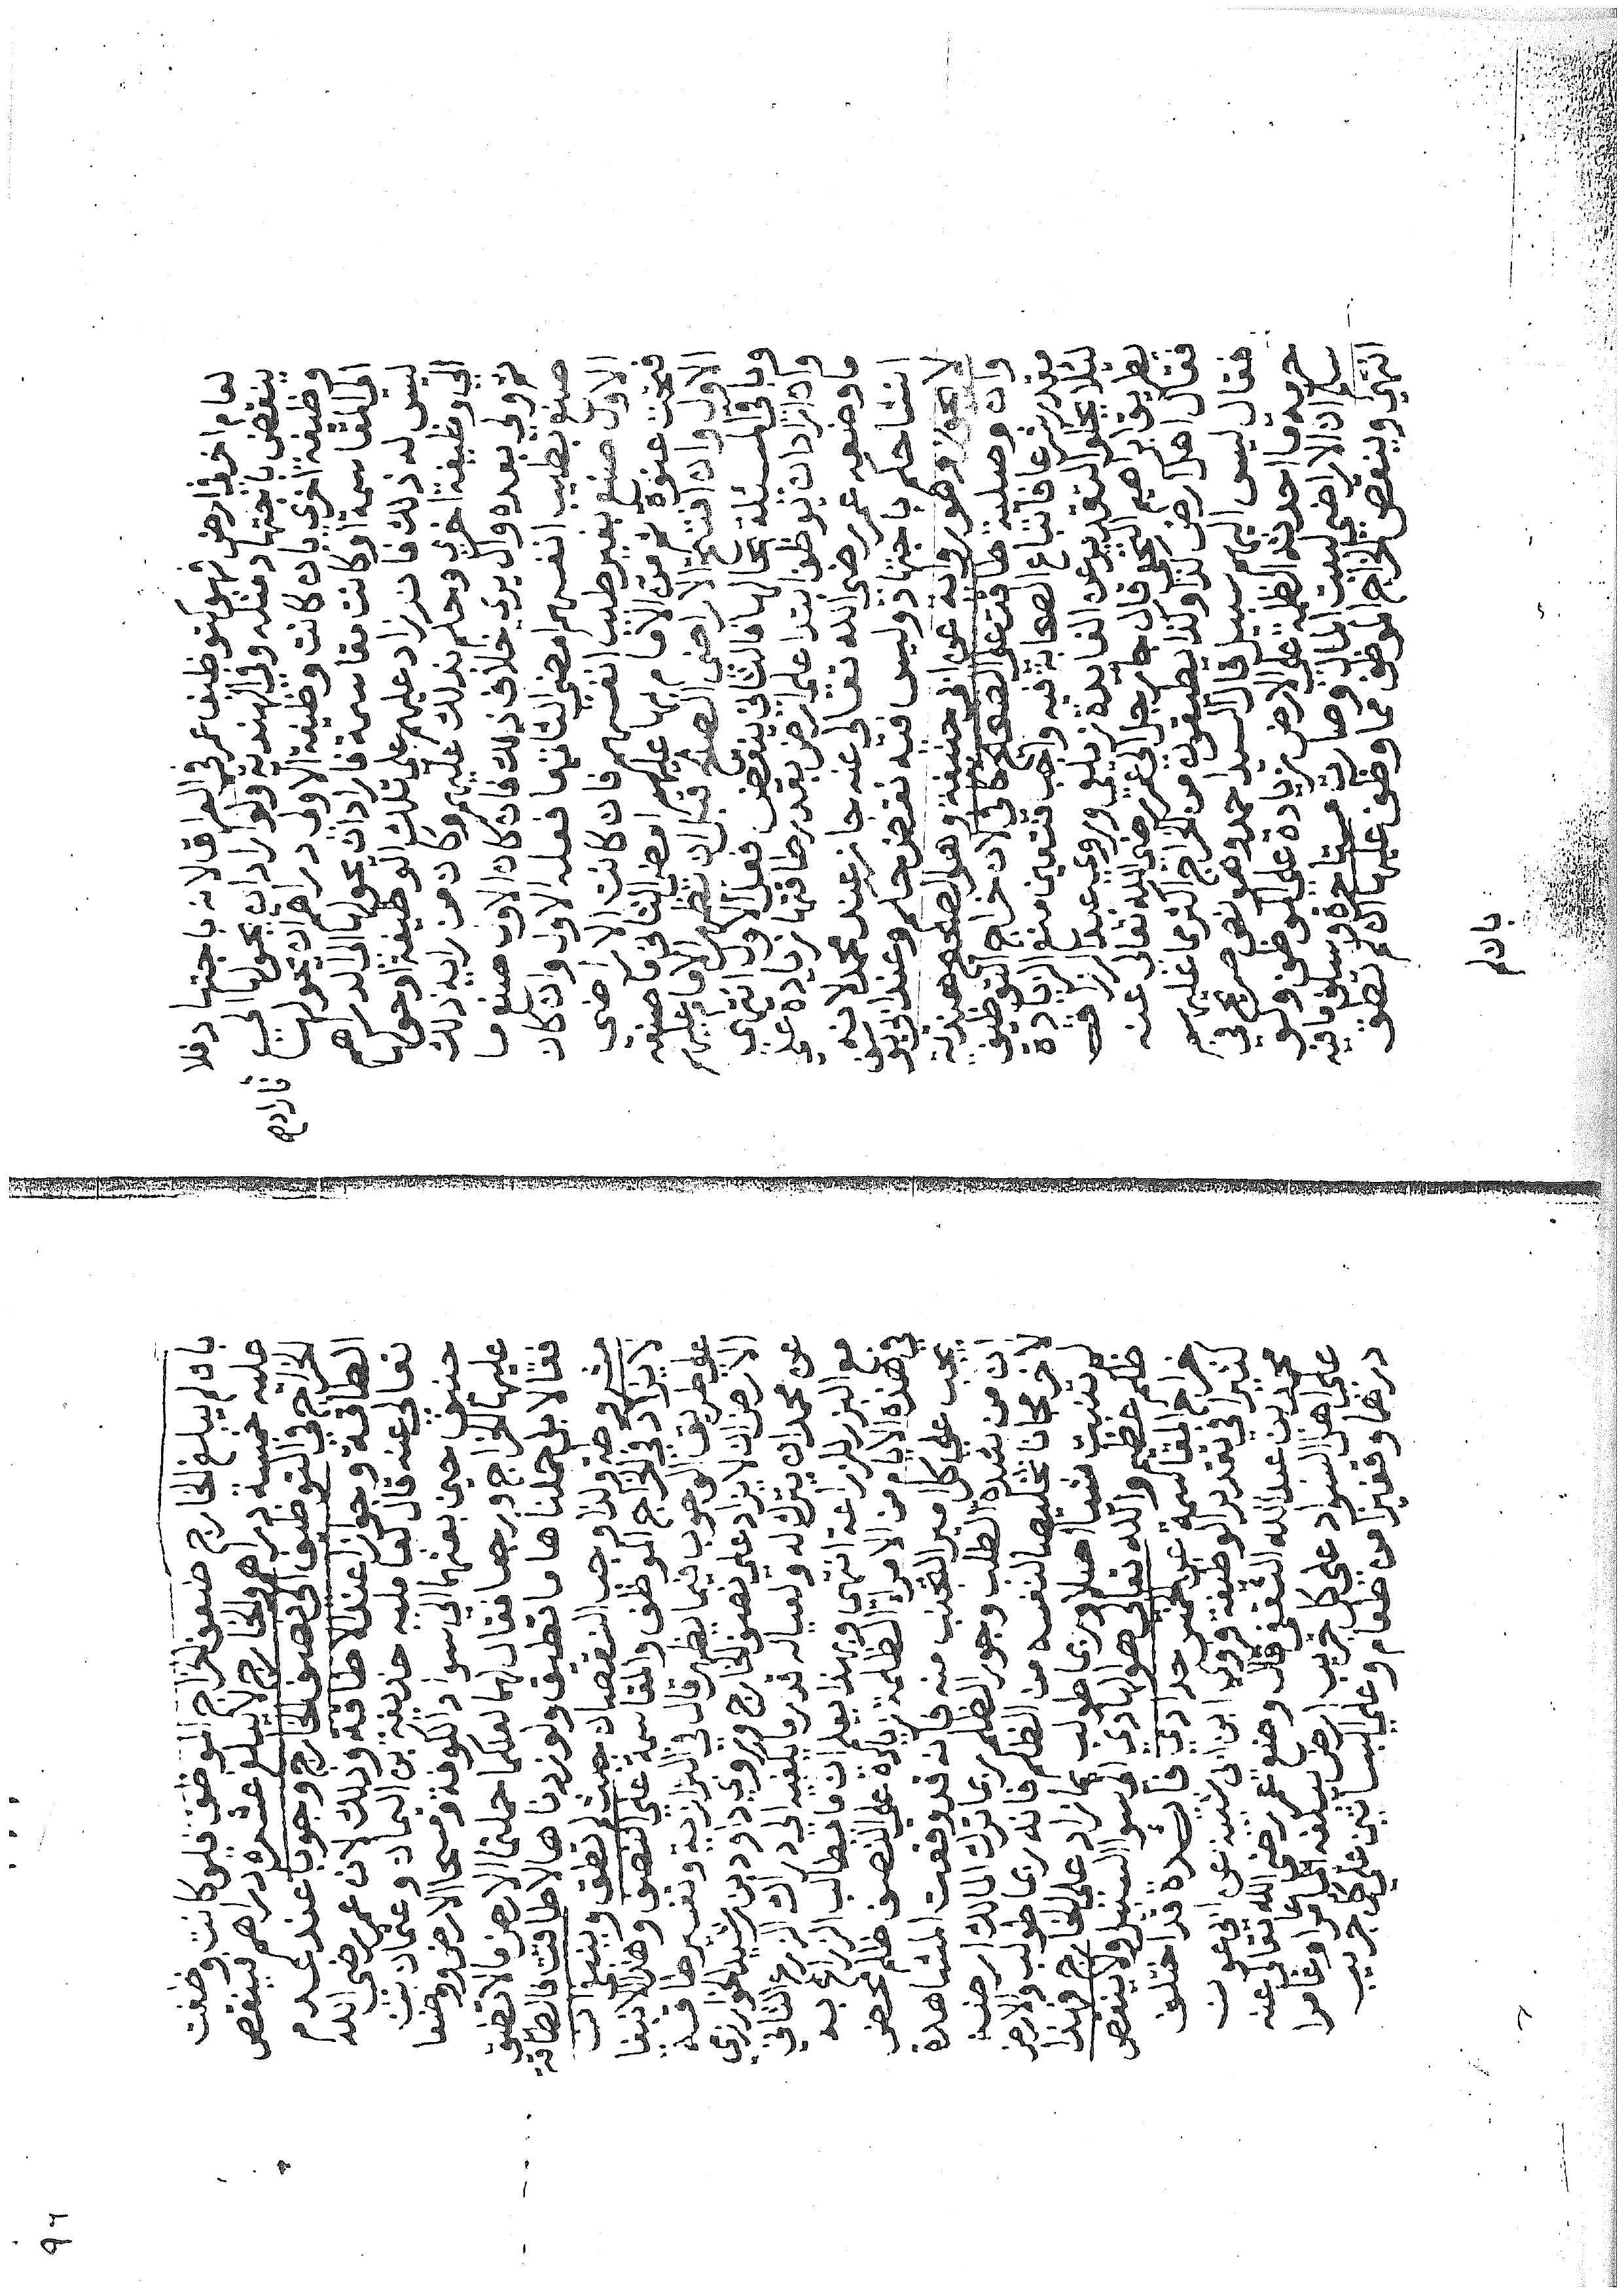 لعام اخر في ارض فهو كتوظيف عمر في العراق لانه باجتهاد فلا
ينقض باجتهاد مثله وفي الهندية ولو اراد ان يحولها الى
وظيفة اخرى بان كانت وظيفة الاولى دراهم ان يحولها
فاراد
الى المقاسمة او كانت مقاسمة فاراد ان يحولها الى الدراهم
ليس له ذلك فان زاد عليهم على تلك الوظيفة او حولها
الى وظيفة اخرى وحكم بذلك عليهم وكان من رايه ذلك
ثم ولي بعده وال يرى خلاف ذلك فان كان الاول صنع ما
صنع بطيب انفسهم امضى الثاني ما فعله الاول وان كان
الاول صنع بغير طيب انفسهم فان كانت الاراضي
فتحت عنوة ثم من الامام بها عليهم امضى الثاني ما صنعه
الاول وان افتتح الاراضي الصلح قبل ان يظهر الامام عليهم
وباقي المسئلة بحالها فالثاني ينقض فعل الاول انتهى
وان اراد ان يوظف ابتدا على ارض بقدر طاقتها زيادة على
ما وضعه عمر رضي الله تعالى عنه جاز عند محمد لانه
انشا حكم باجتهاد وليس فيه نقض حكم وعند ابي يوسف
لا يجوز وهو رواية عن ابي حنيفة وهو الصحيح هندية
وان وصلية طاقت على الصحيح كافي لان خراج التوظيف
مقدر شرعا فاتباع الصحابة فيه واجب فتعين منع الزيادة
لئلا يخلو التقدير عن الفايدة زيلعي وروي عبد الرزاق
بطريق ابراهيم النخعي قال جا رجل الى عمر رضي الله تعالى عنه
فقال اهل ارض كذا وكذا يطيقون من الخراج اكثر مما عليهم
فقال ليس اليهم سبيل قال السيد احمد وهو نص صريح في
حرمة ما احدثه الظلمة على الارض من زيادة على الموظف ولو
سلم ان الاراضي لبيت المال وصارت مستاجرة وسلف مافيه
انتهى وينقص الخراج الموظف مما وظف عليها ان لم تطق
بان لم
بان لم يبلغ الخارج ضعف الخراج الموظف فلو كانت وظفت
عليه خمسة دراهم والخارج لا يبلغ عشرة دراهم فينقص
الخراج في التوظيف الى نصف الخارج وجوبا عند عدم
الطاقة وجوازا عند الاطاقة وذلك لان عمر رضي الله
تعالى عنه قال لعامليه حذيفة بن اليمان وعثمان بن
حنيف حين بعثهما الى سواد الكوفة ومسحا الارض ووضعا
عليها الخراج ورجعا فقال لهما لعلكما حملتما الارض ما لا تطيق
فقالا بل حملناها ما تطيق ولو زدناها لاطاقت فالطاقة
شرط فلذا وجب النقصان حيث لم تطق وينبغي ان
لا يزاد في الخراج الموظف والمقاسمة على النصف وهذا الانبغا
على طريق الوجوب فيما يظهر قال في البزازية وتفسير طاقة
الارض ان لا يزيد على نصف الخارج وروي داود بن رشيد الخوارزمي
عن محمد ان يترك له ولعياله قدر ما يكفيه الى دراك الزرع الثاني
مع البزر للزراعة انتهى وبهذا يعلم ان ما يطالب الزراع به
في هذه الايام من الامراء الظلمة زيادة على النصف ظلم محض
يجب على كل مير التجنب منه فانه قد وقعت المشاهدة
ان من شدة الطلب وجور الظلم ربما ترك المالك ارضه
لاخر مجانا تخليصا لنفسه من الظلم فانه ربما طولب والارض
لم تنبت شيئا اصلا وربما طولب بما زاد على الخارج فهذا
ظلم عظيم والله تعالى هو الهادي الى سوا السبيل ولا ينقص
خراج المقاسمة عن الخمس حدادي فايدة قد اختلف
كثيرا في تقدير الوظيفة وروي ابن ابي شيبة عن ابي عون
محمد بن عبد الله الثقفي قال وضع عمر رضي الله تعالى عنه
على اهل السواد على كل جريب ارض يبلغه الما عامرا او غامرا
درهما وقفيزا من طعام وعلى البساتين على كل جريب
٩٦